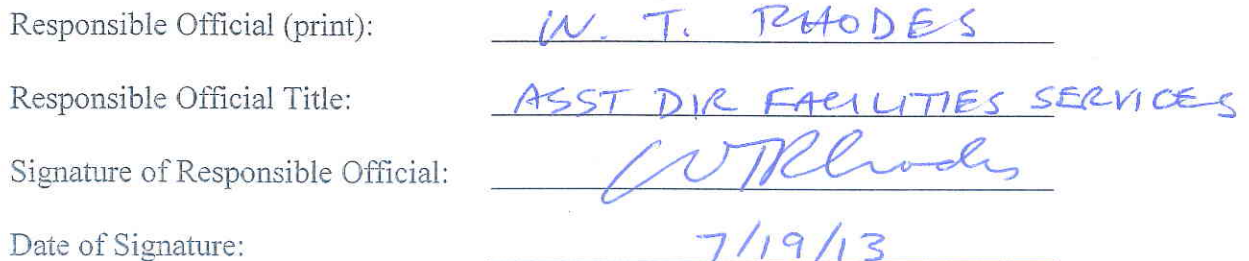 Responsible Official (print): W. T. RHODES
Responsible Official Title: ASST DIR FACILITIES SERVICES
Signature of Responsible Official: WTRhodes
Date of Signature: 7/19/13